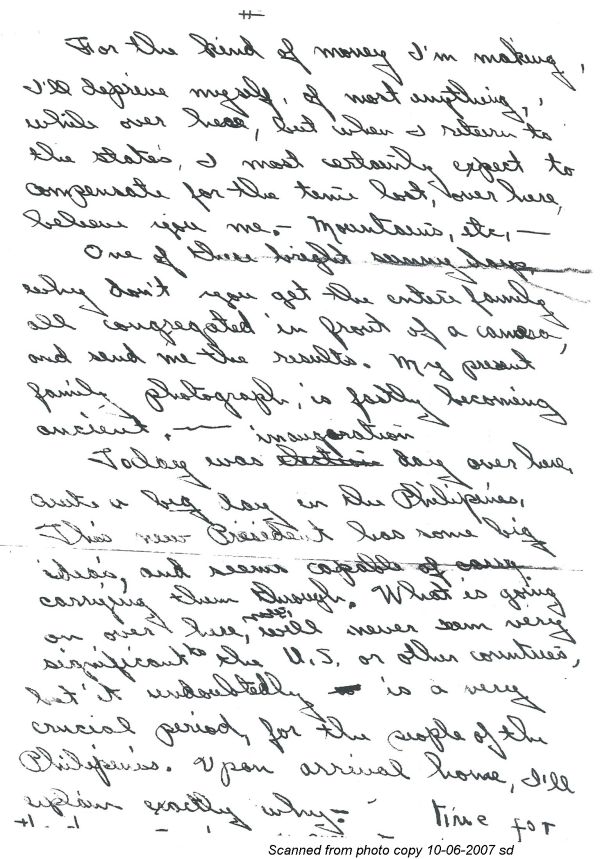 #
For the kind of money I'm making,
I'll deprive myself, of most anything,
while over here, but when I return to
the states, I most certainly expect to
compensate for the time lost, over here,
believe you me. - Mountains, etc, —
One of these bright sunny days
why don't you get the entire family
all congregated in front of a camera,
and send me the results. My present
family photograph, is fastly becoming
ancient. — inauguration
Today was election day over here,
quite a big day in the Philipines.
This new President has some big
ideas, and seems capable of carry
carrying them through. What is going
on over here, now, will never seem very
significant to the U.S. or other countries,
but it undoubtedly is a very
crucial period, for the people of the
Philipines. Upon arrival home, I'll
explain exactly why - time for
Scanned from photo copy 10-06-2007 sd